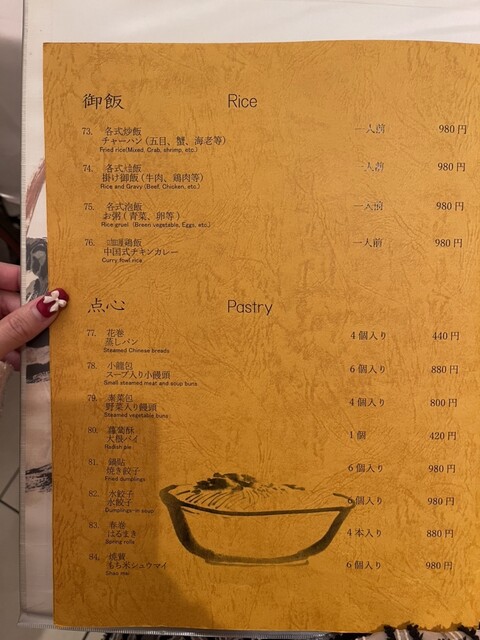 御飯 Rice
73. 各式炒飯 一人前 980円
チャーハン(五目、蟹、海老等)
Fried rice(Mixed, Crab, shrimp, etc.)
74. 各式燴飯 一人前 980円
掛け御飯(牛肉、鶏肉等)
Rice and Gravy (Beef, Chicken, etc.)
75. 各式泡飯 一人前 980円
お粥(青菜、卵等)
Rice gruel (Breen vegetable, Eggs, etc.)
76. 咖喱鶏飯 一人前 980円
中国式チキンカレー
Curry fowl rice
点心 Pastry
77. 花巻 4個入り 440円
蒸しパン
Steamed Chinese breads
78. 小龍包 6個入り 880円
スープ入り小饅頭
Small steamed meat and soup buns
79. 素菜包 4個入り 800円
野菜入り饅頭
Steamed vegetable buns
80. 蘿蔔酥 1個 420円
大根パイ
Radish pie
81. 鍋貼 6個入り 980円
焼き餃子
Fried dumplings
82. 水餃子 6個入り 980円
水餃子
Dumplings in soup
83. 春巻 4本入り 880円
はるまき
Spring rolls
84. 焼賣 6個入り 980円
もち米シュウマイ
Shao mai